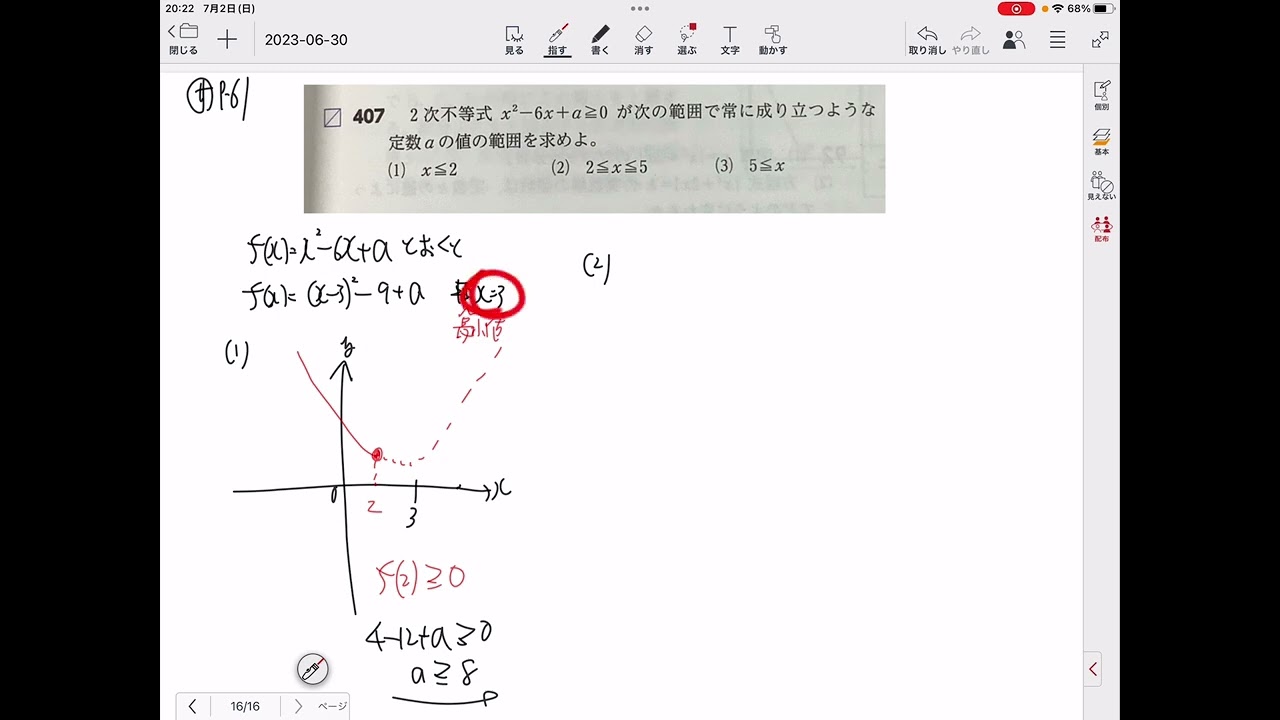 20:22 7月2日(日)
68%
閉じる
2023-06-30
見る 指す 書く 消す 選ぶ 文字 動かす
取り消し やり直し
個別
基本
見えない
配布
P.61
407 2次不等式 x²−6x+a≧0 が次の範囲で常に成り立つような
定数 a の値の範囲を求めよ。
(1) x≦2 (2) 2≦x≦5 (3) 5≦x
f(x)=x²−6x+a とおくと
f(x)=(x−3)²−9+a x=3
最小値
(1)
y
0 2 3 x
f(2)≧0
4−12+a≧0
a≧8
(2)
16/16 ページ